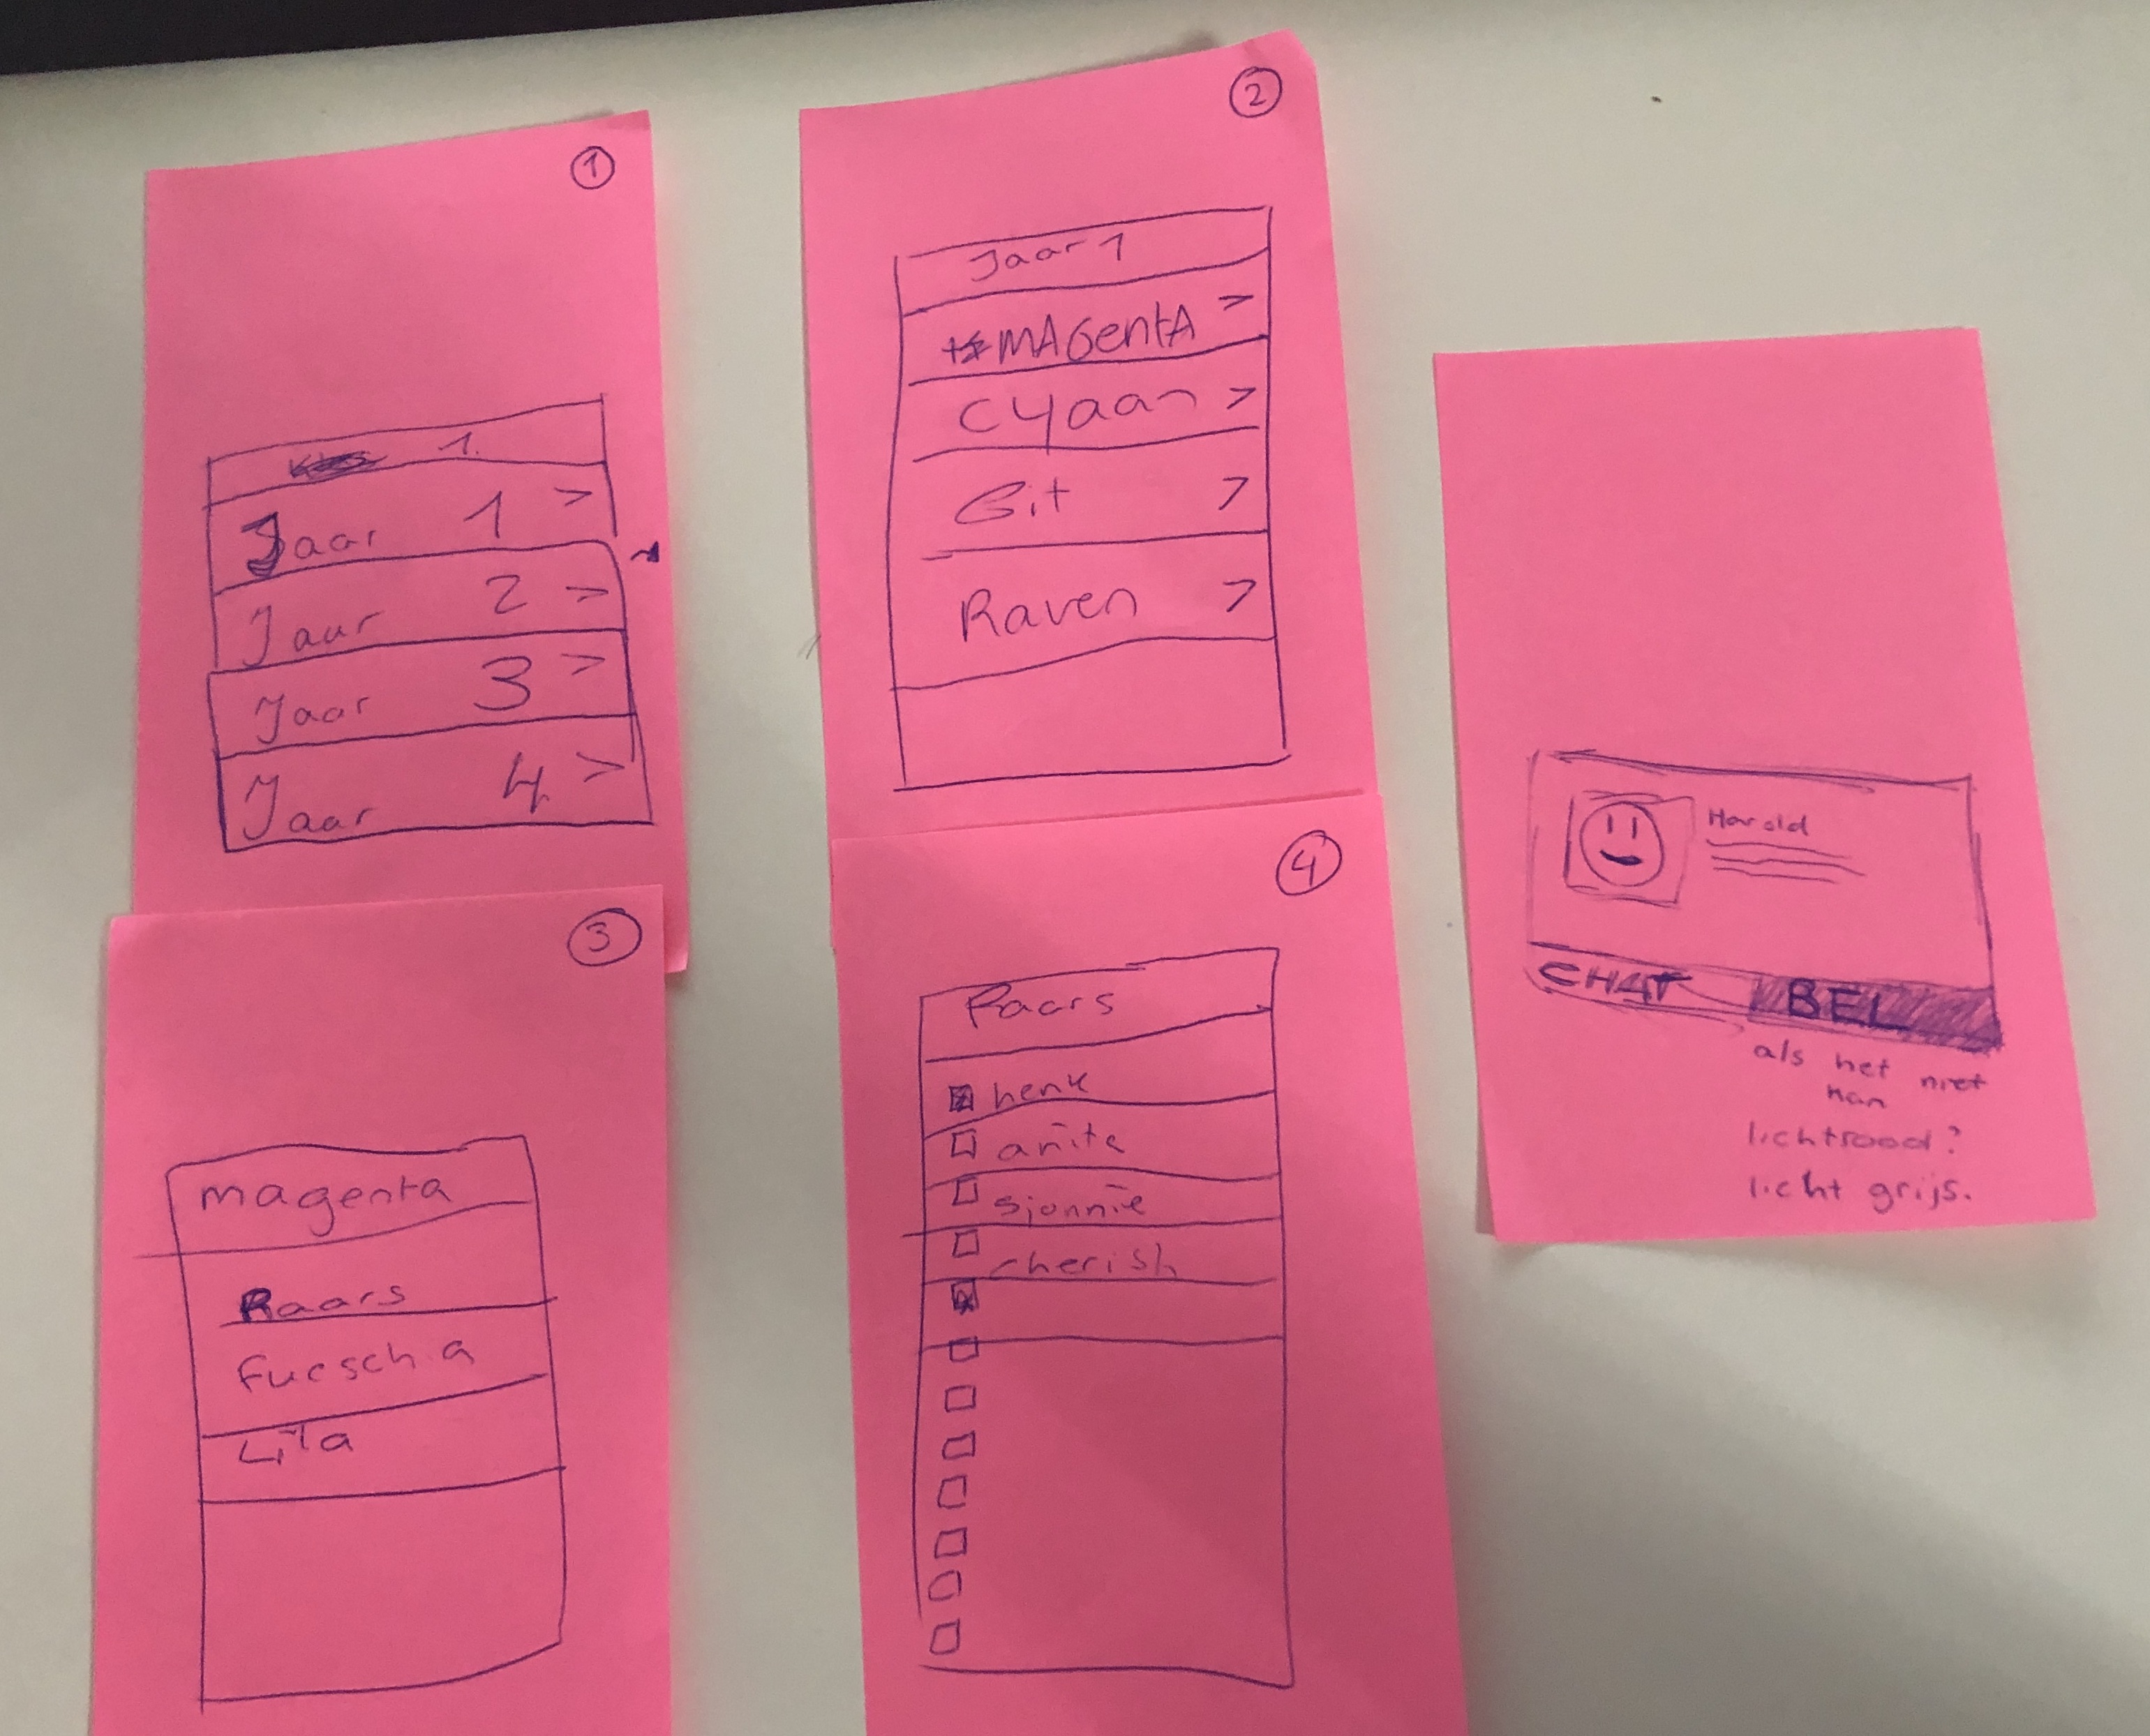 1
1.
Jaar 1 >
Jaar 2 >
Jaar 3 >
Jaar 4 >
2
Jaar 1
MAGentA >
Cyaan >
Git >
Raven >
3
magenta
Paars
fucschia
Lila
4
Paars
henk
anita
sjonnie
cherish
Harold
CHAT BEL
als het niet
kan
lichtrood?
licht grijs.